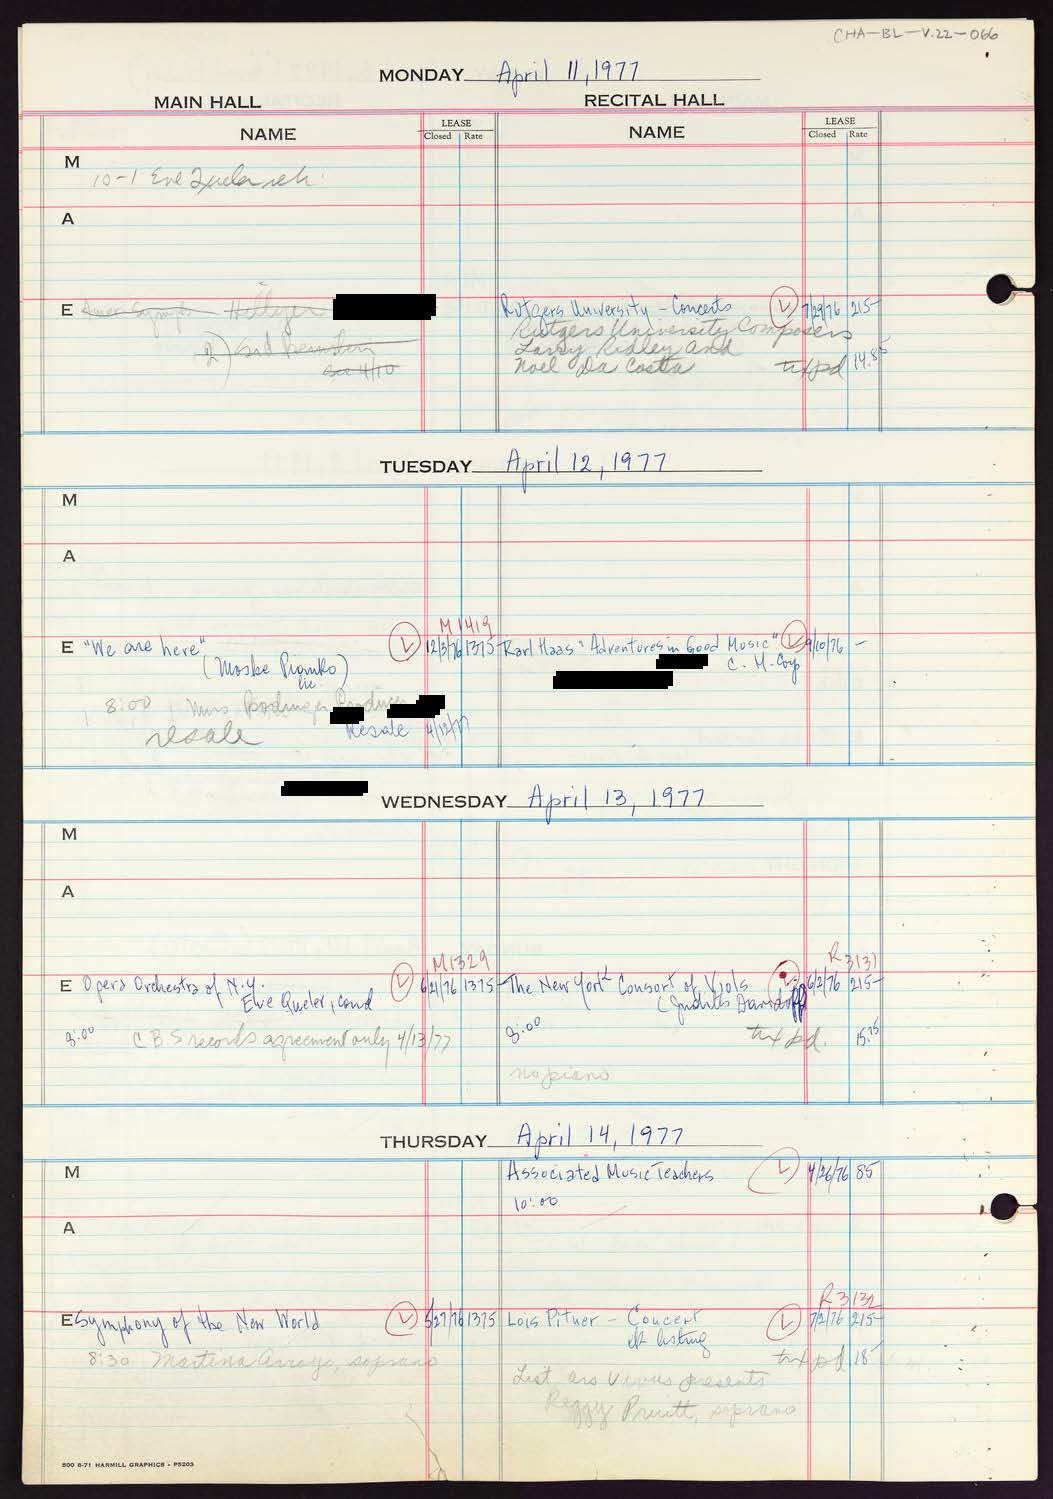 CHA-BL-V.22-066
MONDAY April 11, 1977
MAIN HALL RECITAL HALL
NAME LEASE Closed Rate NAME LEASE Closed Rate
M
10-1 Eve
A
E Amer Symph Hillyer Rutgers University - Concerts L 7/29/76 215-
Rutgers University Composers
2) Larry Ridley and
see 4/10 Noel Da Costa tax pd 14.85
TUESDAY April 12, 1977
M
A
M1419
E "We are here" L 12/3/76 1375 Karl Haas "Adventures in Good Music" L 9/10/76 -
(Moshe Pianko) C. M. Corp
lic
8:00 Mrs Producer
resale Resale 4/12/77
WEDNESDAY April 13, 1977
M
A
M1329 R3131
E Opera Orchestra of N.Y. L 6/21/76 1375- The New York Consort of Viols L 6/2/76 215-
Eve Queler, cond (Judith Davidoff
8:00 CBS records agreement only 4/13/77 8:00 tax pd. 15.75
no piano
THURSDAY April 14, 1977
M Associated Music Teachers L 4/26/76 85
10:00
A
R3132
E Symphony of the New World L 5/27/76 1375 Lois Pitner - Concert L 7/2/76 215-
ok listing
8:30 Martina Arroyo, soprano tax pd 18-
List ars Vivus presents
Peggy Pruitt, soprano
500 8-71 HARMILL GRAPHICS - P5203